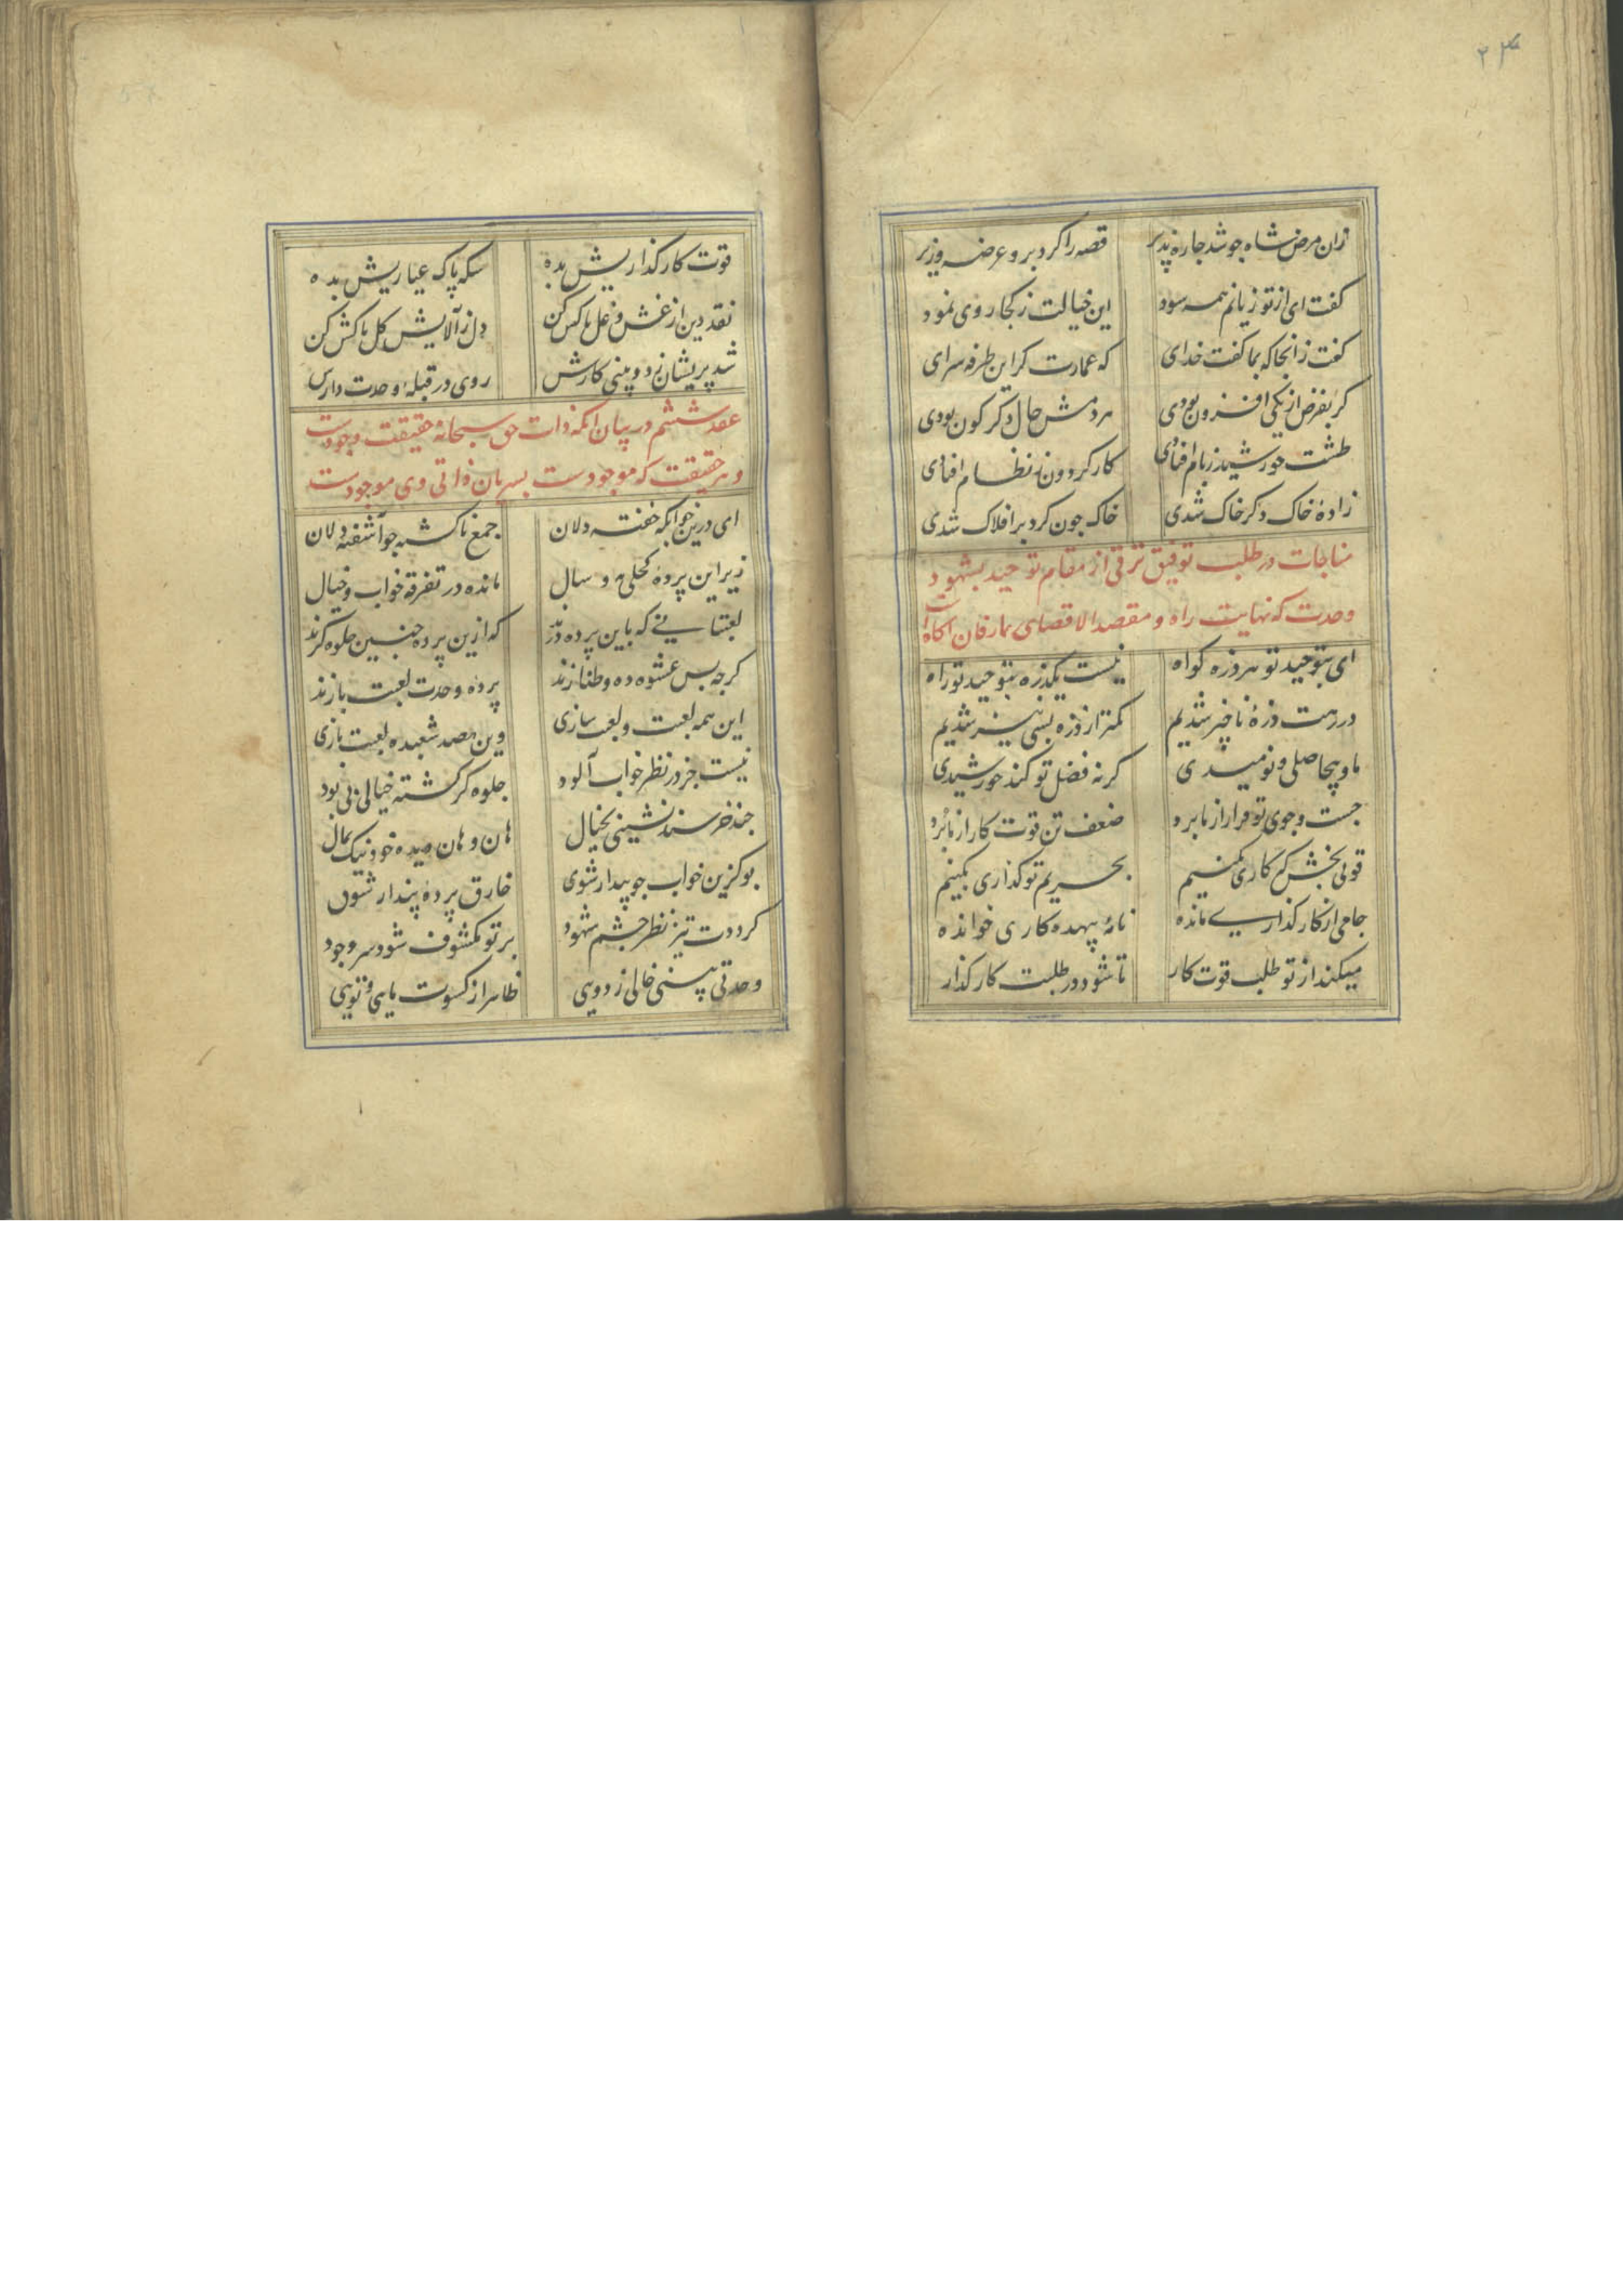 ۲۴
زان مرض شاه جو شد جاره پذیر قصه را کرد برو عرضه وزیر
کفت ای از تو زیانم همه سود این خیالت ز کجا روی نمود
کفت زانجا که بما کفت خدای که عمارت کر این طرفه سرای
کر بفرض از یکی افزون بودی هر دمش حال دکر کون بودی
طشت خورشید ز بام افتادی کار کردون ز نظام افتادی
زادهٔ خاک دکر خاک شدی خاک جون کرد بر افلاک شدی
مناجات در طلب توفیق ترقی از مقام توحید بشهود
وحدت که نهایت راه و مقصد الاقصای عارفان آکاه است
ای بتوحید تو هر ذره کواه نیست یکذره بتوحید تو راه
در رهت ذرهٔ ناجیز شدیم کمتر از ذره بسی نیز شدیم
ما و بیحاصلی و نومیدی کر نه فضل تو کند خورشیدی
جست و جوی تو قرار از ما برد ضعف تن قوت کار از ما برد
قوتی بخش که کاری بکنیم بحریم تو کذاری بکنیم
جامی از کار کذاری مانده نامهٔ بیهده کاری خوانده
میکند از تو طلب قوت کار تا شود در طلبت کار کذار
قوت کار کذاریش بده سکه پاک عیاریش بده
نقد دین از غش و غل پاکش کن دل ز آلایش کل پاکش کن
شد پریشان ز دو بینی کارش روی در قبلهٔ وحدت دارش
عقد ششم در بیان آنکه ذات حق سبحانه حقیقت وجودست
و هر حقیقت که موجودست بسریان ذاتی وی موجودست
ای درین خوابکه خفته دلان جمع ناکشته جو آشفته دلان
زیر این پردهٔ کحلی و سال مانده در تفرقهٔ خواب و خیال
لعبتانی که باین پرده درند که ازین پرده جنین جلوه کرند
کرجه بس عشوه ده و طنازند پرده وحدت لعبت بازند
این همه لعبت و لعبت سازی وین همه شعبده لعبت بازی
نیست جز در نظر خواب آلود جلوه کر کشته خیالی بی بود
جند خرسند نشینی بخیال هان و هان دیده خود نیک بمال
بو کزین خواب جو بیدار شوی خارق پردهٔ پندار شوی
کرددت تیز نظر جشم شهود بر تو مکشوف شود سر وجود
وحدتی بینی خالی ز دویی ظاهر از کسوت مایی و تویی